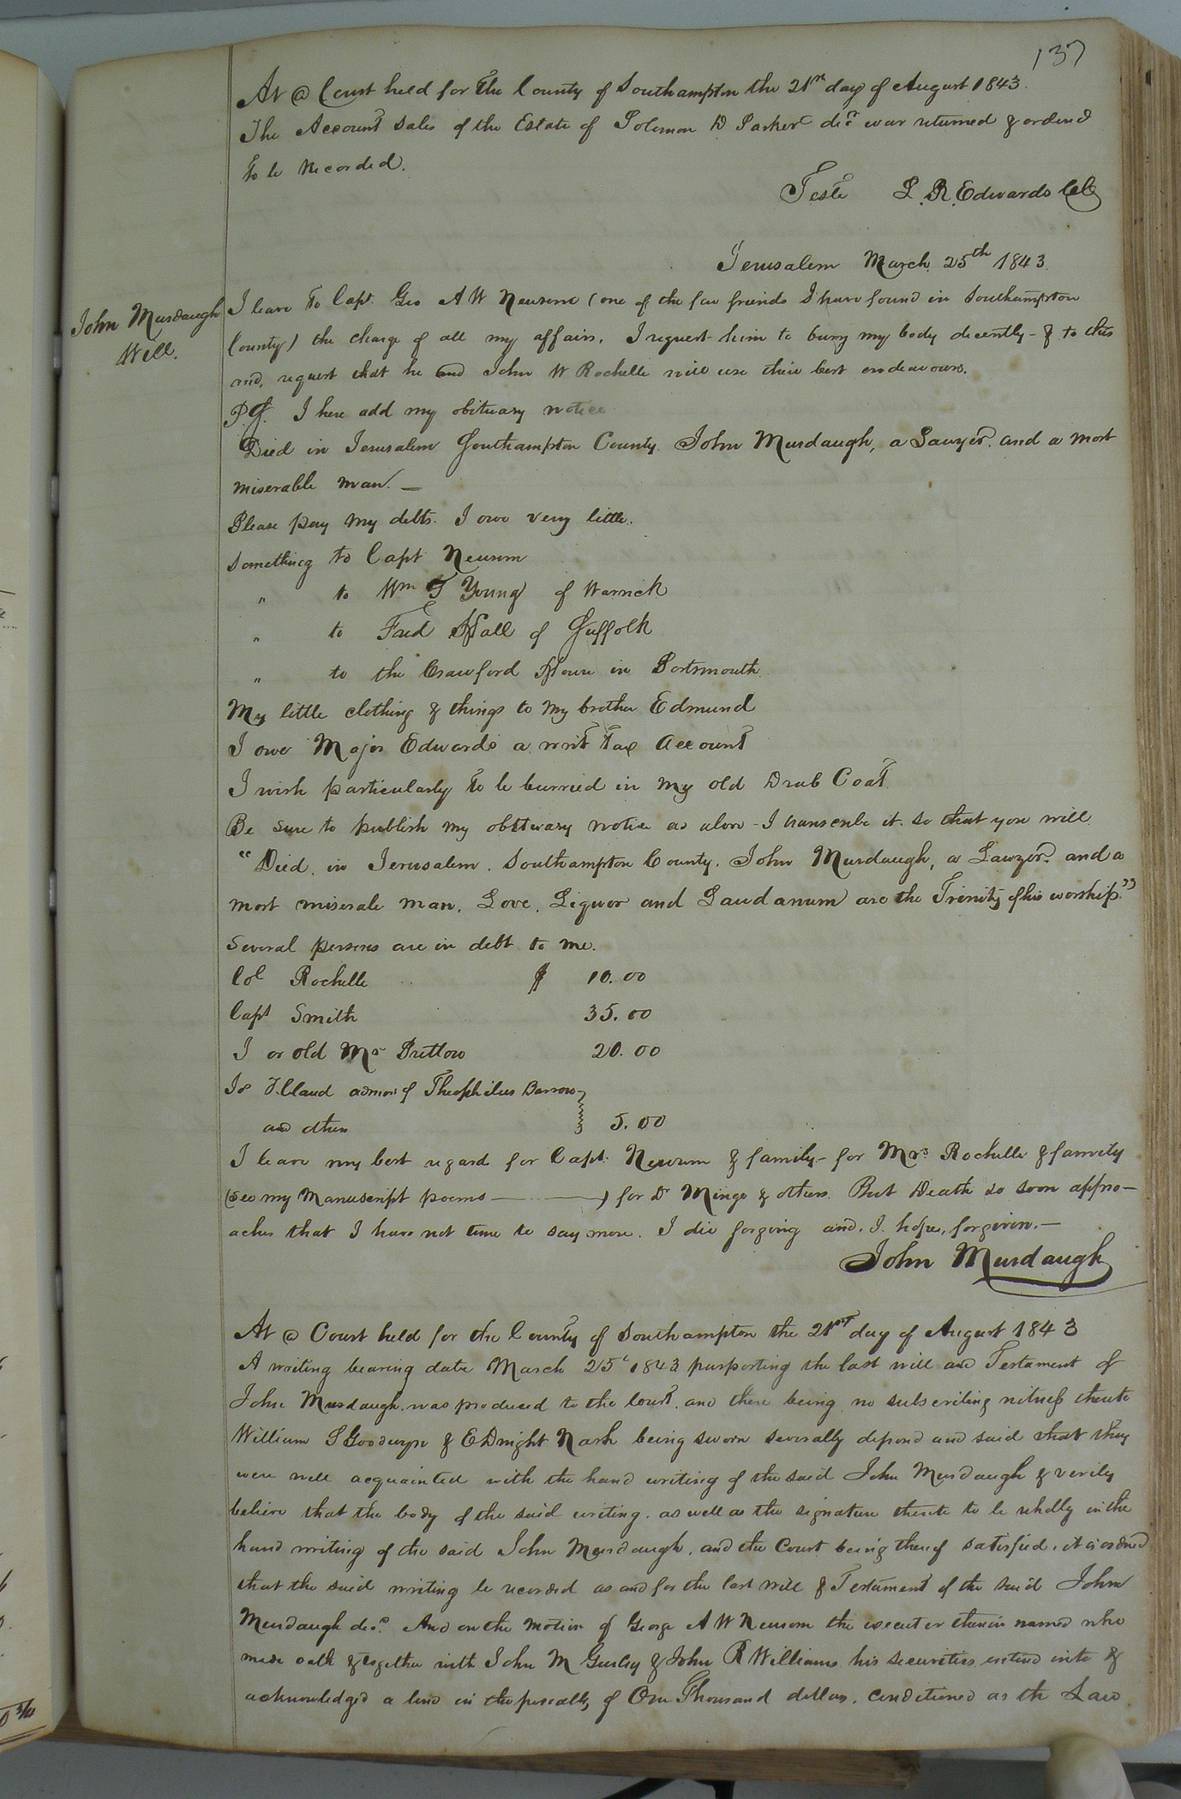 137
At a Court held for the County of Southampton the 21st day of August 1843.
The Account Sales of the Estate of Solomon D Parker decd was returned & ordered
to be Recorded.
Teste L. R. Edwards Clk
Jerusalem March 25th 1843.
John Murdaugh
Will.
I leave to Capt. Geo A W Newsom (one of the few friends I have found in Southampton
County) the charge of all my affairs. I request him to bury my body decently - & to this
end, request that he and John W Rochelle will use their best endeavours.
PS. I here add my obituary notice
Died in Jerusalem Southampton County. John Murdaugh, a Lawyer, and a most
miserable man. —
Please pay my debts. I owe very little.
Something to Capt Newsom
" to Wm S Young of Warwick
" to Fred Hall of Suffolk
" to the Crawford House in Portsmouth
My little clothing & things to my brother Edmund
I owe Major Edwards a writ tax account
I wish particularly to be burried in my old Drab Coat.
Be sure to publish my obituary notice as above - I transcribe it so that you will
"Died, in Jerusalem. Southampton County. John Murdaugh, a Lawyer. and a
most miserale man. Love, Liquor and Laudanum are the Trinity of his worship."
Several persons are in debt to me.
Col Rochelle $ 10.00
Capt Smith 35.00
J or old Mr Pretlow 20.00
Jos J. Claud admor of Theophilus Barrow
and others } 5.00
I leave my best regard for Capt. Newsom & family - for Mrs Rochelle & family
(see my Manuscript poems ———) for Dr Minge & others. But Death so soon appro-
aches that I have not time to say more. I die forgiving and, I hope, forgiven. —
John Murdaugh
At a Court held for the County of Southampton the 21st day of August 1843
A writing bearing date March 25th 1843 purporting the last will and Testament of
John Murdaugh. was produced to the Court, and there being no subscribing witness thereto
William S Goodwyn & E Dwight Nash being sworn severally deposed and said that they
were well acquainted with the hand writing of the said John Murdaugh & verily
believe that the body of the said writing, as well as the signature thereto to be wholly in the
hand writing of the said John Murdaugh, and the Court being thereof satisfied, it is ordered
that the said writing be recorded as and for the last will & Testament of the said John
Murdaugh decd. And on the motion of George A W Newsom the executor therein named who
made oath & together with John M Gurley & John R Williams his securities entered into &
acknowledged a bond in the penalty of One Thousand dollars, Conditioned as the Law